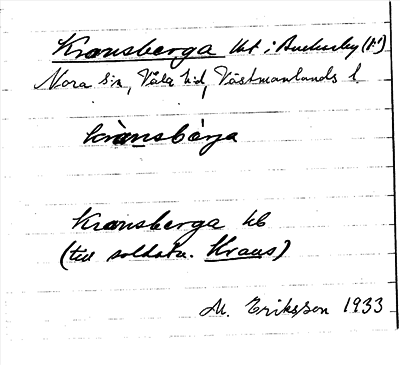 Kransberga lht i Buckarby (1:1)
Nora sn, Våla hd, Västmanlands l
krànsbárja
Kransberga hb
(till soldatn. Krans)
M. Eriksson 1933